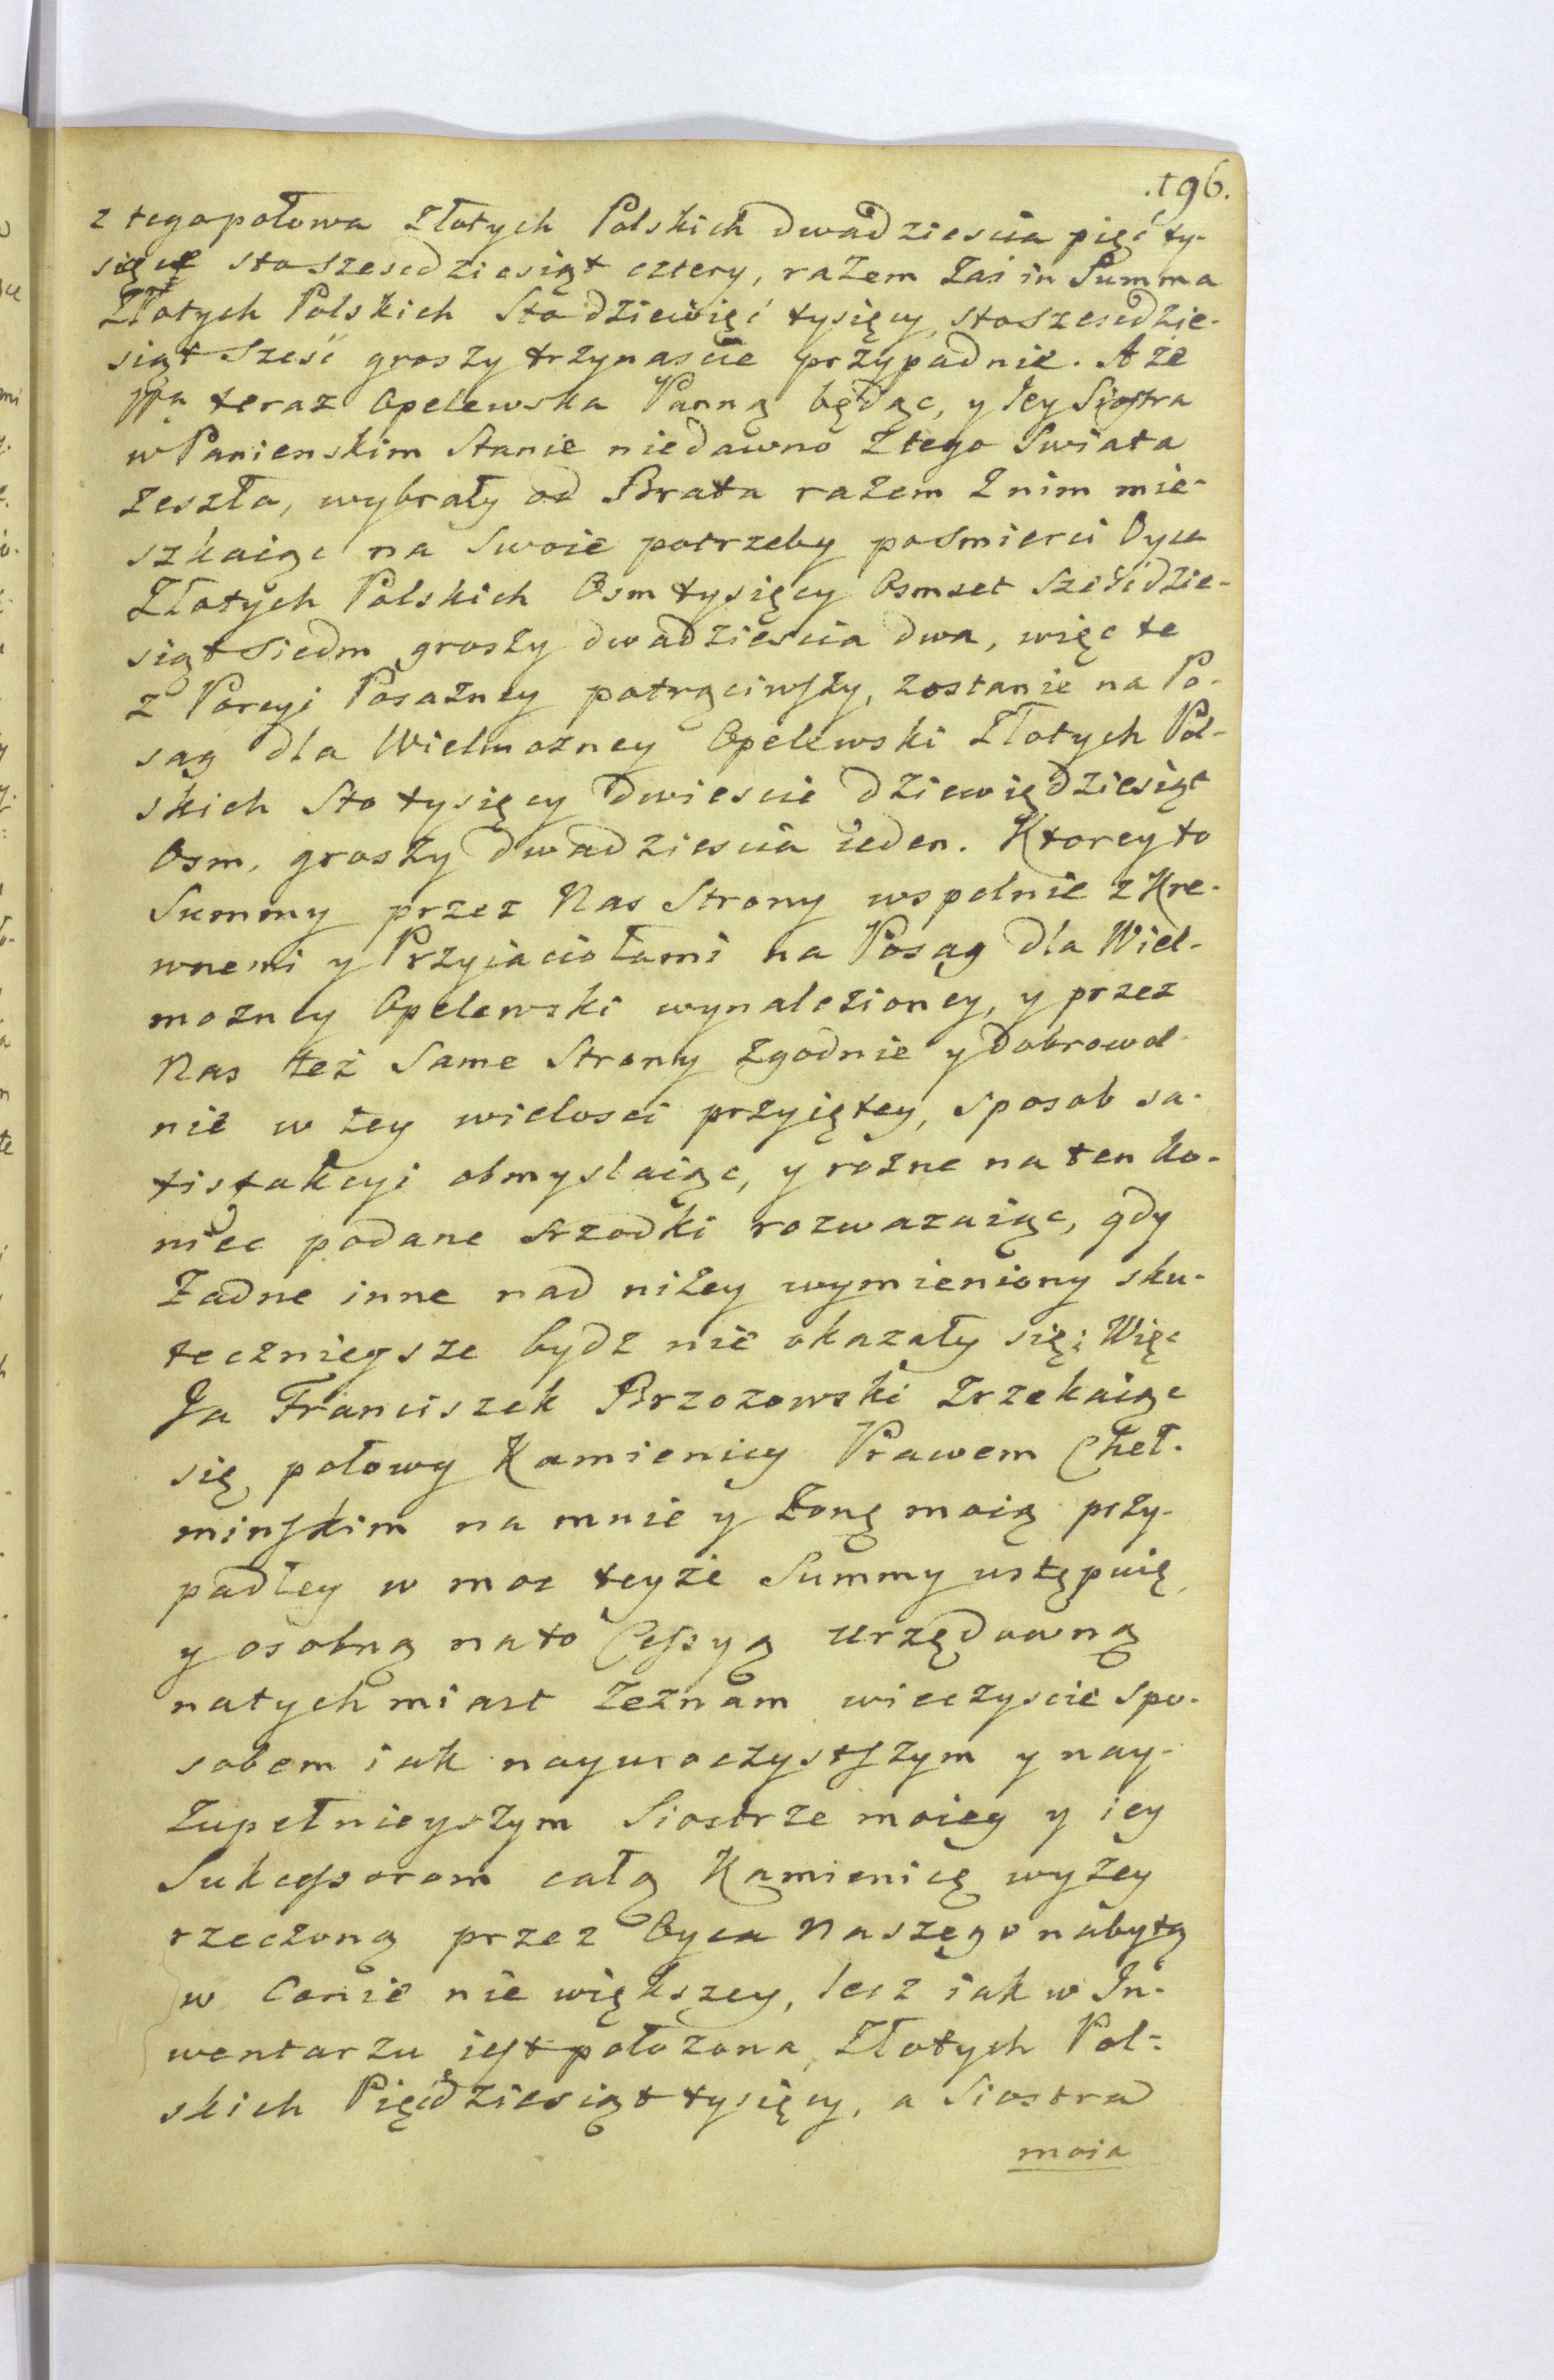 .196.
z tego połowa złotych Polskich dwadziescia pięć ty-
sięcy stoszescdziesiąt cztery, razem zaś in Summa
Złotych Polskich Sto dziewięć tysięcy stoszescdzie-
siąt sześć groszy trzynascie przypadnie. A że
JPa teraz Opelewska Panną będąc, y Jey Siostra
w Panienskim Stanie niedawno z tego Swiata
zeszła, wybrały od Brata razem z nim mie-
szkaiąc na swoie potrzeby po smierci Oyca
Złotych Polskich Osm tysięcy Osmset sześćdzie-
siąt siedm groszy dwadziescia dwa, więc te
z Porcyi Posazney potrąciwszy, zostanie na Po-
sag dla Wielmozney Opelewski Złotych Pol-
skich Sto tysięcy dwiescie dziewiędziesiąt
Osm, groszy dwadziescia ieden. Ktorey to
Summy przez Nas Strony wspolnie z Kre-
wnemi y Przyiaciołami na Posag dla Wiel-
mozney Opelewski wynalezioney, y przez
Nas też same Strony zgodnie y dobrowol-
nie w tey wielosci przyiętey, sposob sa-
tisfakcyi obmyslaiąc, y rozne na ten ko-
niec podane szrodki rozwazaiąc, gdy
żadne inne nad niżey wymieniony sku-
tecznieysze bydz nie okazały się; Więc
Ja Franciszek Brzozowski zrzekaiąc
się połowy Kamienicy Prawem Cheł-
minskim na mnie y żonę moią przy-
padłey w moc teyże Summy ustępuię,
y osobną na to Cessyą urzędowną
natychmiast zeznam wieczyscie spo-
sobem iak nayuroczystszym y nay-
zupełnieyszym Siostrze moiey y iey
Sukcessorom całą Kamienicę wyżey
rzeczoną przez Oyca Naszego nabytą
w Cenie nie większey, lecz iak w In-
wentarzu iest położona, Złotych Pol-
skich Pięćdziesiąt tysięcy, a Siostra
moia